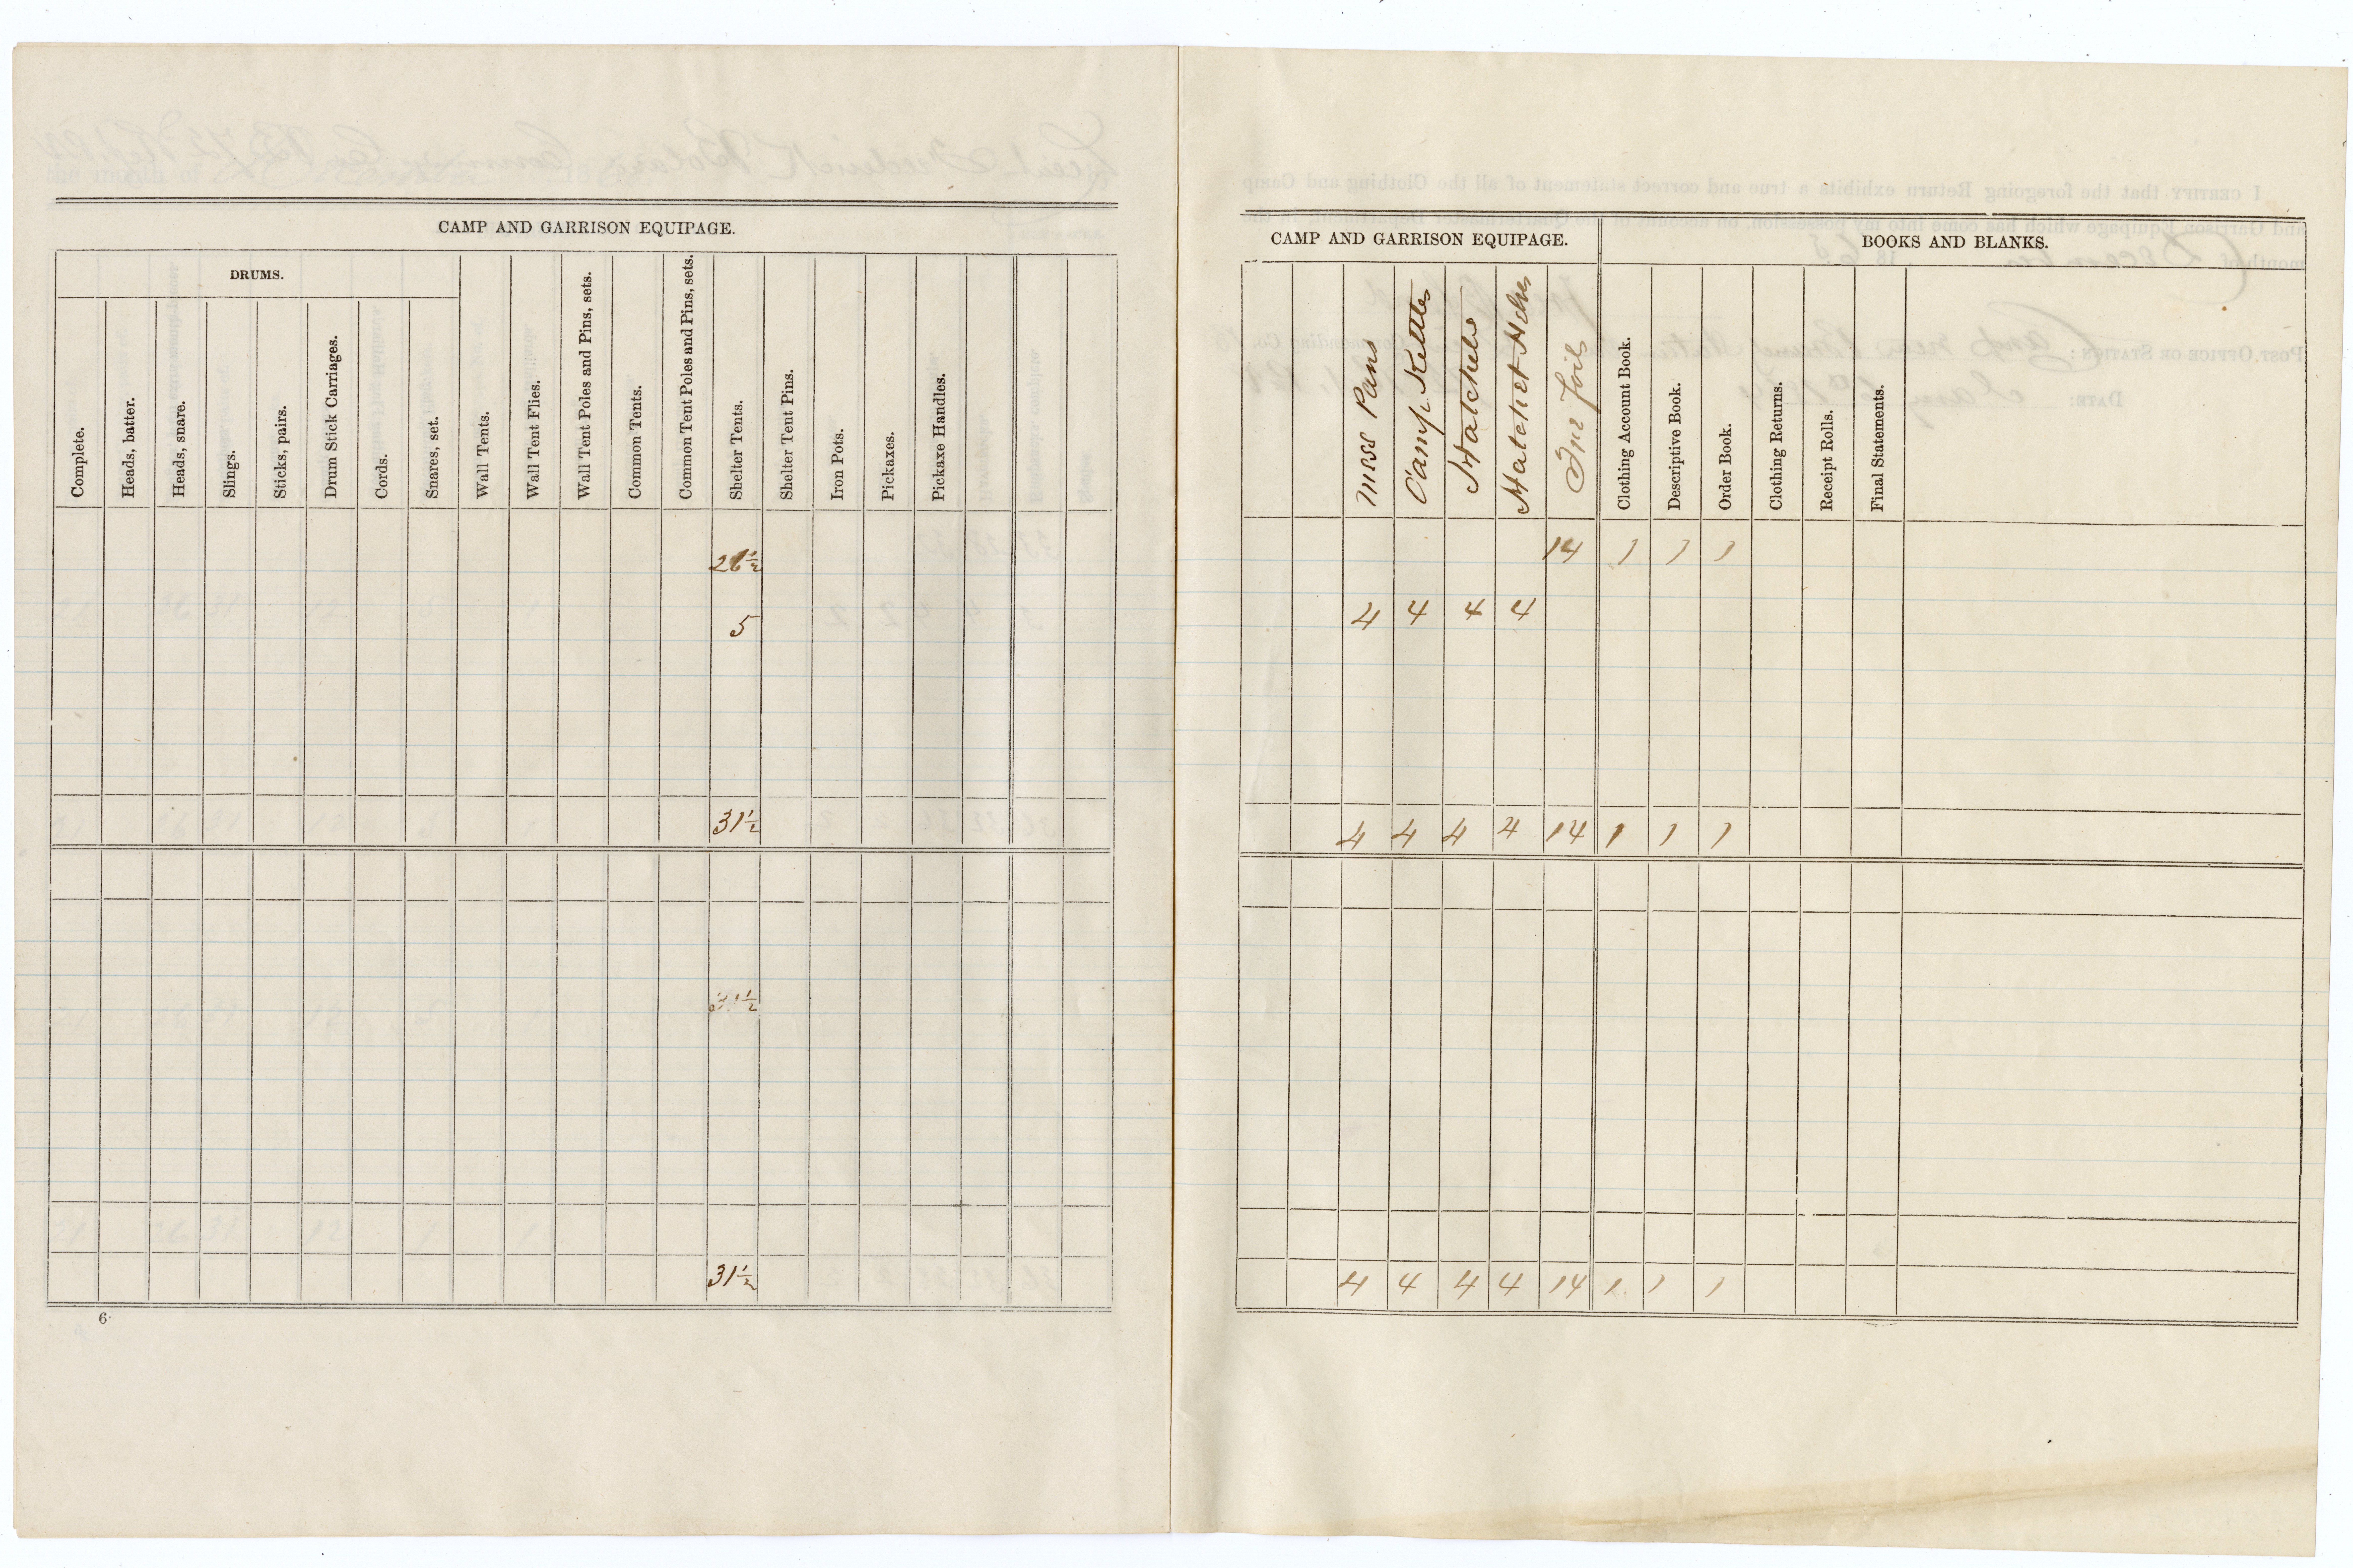 CAMP AND GARRISON EQUIPAGE.
DRUMS.
Complete.
Heads, batter.
Heads, snare.
Slings.
Sticks, pairs.
Drum Stick Carriages.
Cords.
Snares, set.
Wall Tents.
Wall Tent Flies.
Wall Tent Poles and Pins, sets.
Common Tents.
Common Tent Poles and Pins, sets.
Shelter Tents.
Shelter Tent Pins.
Iron Pots.
Pickaxes.
Pickaxe Handles.
26½
5
31½
31½
31½
6
CAMP AND GARRISON EQUIPAGE.
BOOKS AND BLANKS.
Mess Pans
Camp Kettles
Hatchels
Hatchet Helves
Clothing Account Book.
Descriptive Book.
Order Book.
Clothing Returns.
Receipt Rolls.
Final Statements.
14 1 1 1
4 4 4 4
4 4 4 4 14 1 1 1
4 4 4 4 14 1 1 1